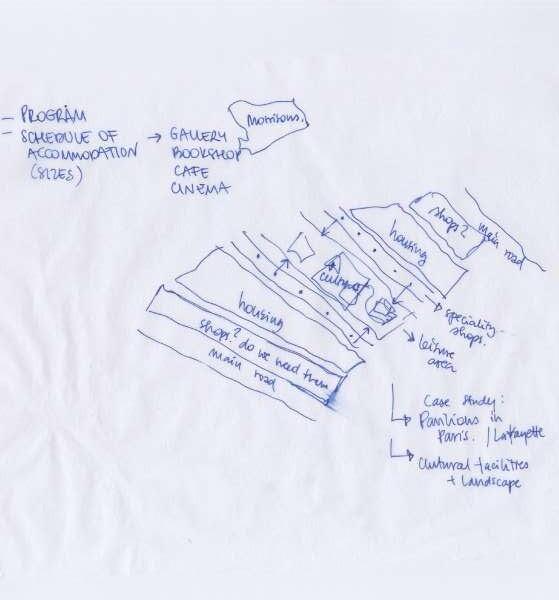 - PROGRAM
- SCHEDULE OF → GALLERY
ACCOMMODATION BOOKSHOP
(SIZES) CAFE
CINEMA
Morrisons.
shops?
main road
housing
cultural
speciality
shops.
leisure
area
housing
shops? do we need them
main road
Case study:
Pavilions in
Paris. / Lafayette
Cultural facilities
+ Landscape